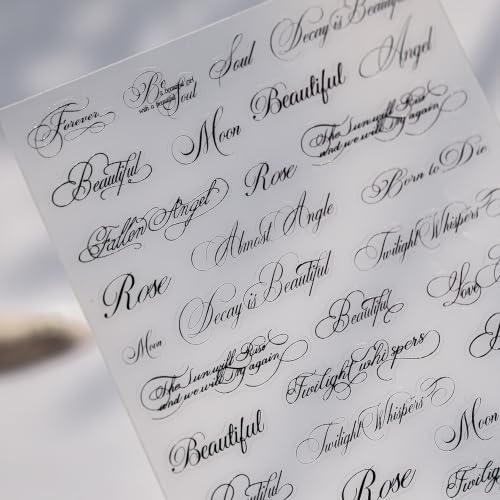 Forever
Be
a beautiful girl
with a beautiful
Soul
Soul
Decay is Beautiful
Beautiful
Moon
Beautiful
Angel
Fallen Angel
Rose
The sun will Rise
and we will try again
Rose
Almost Angle
Born to Die
Moon
Decay is Beautiful
Twilight Whispers
The sun will Rise
and we will try again
Beautiful
Love
Beautiful
Twilight whispers
Twilight Whispers
Moon
Beautiful
Rose